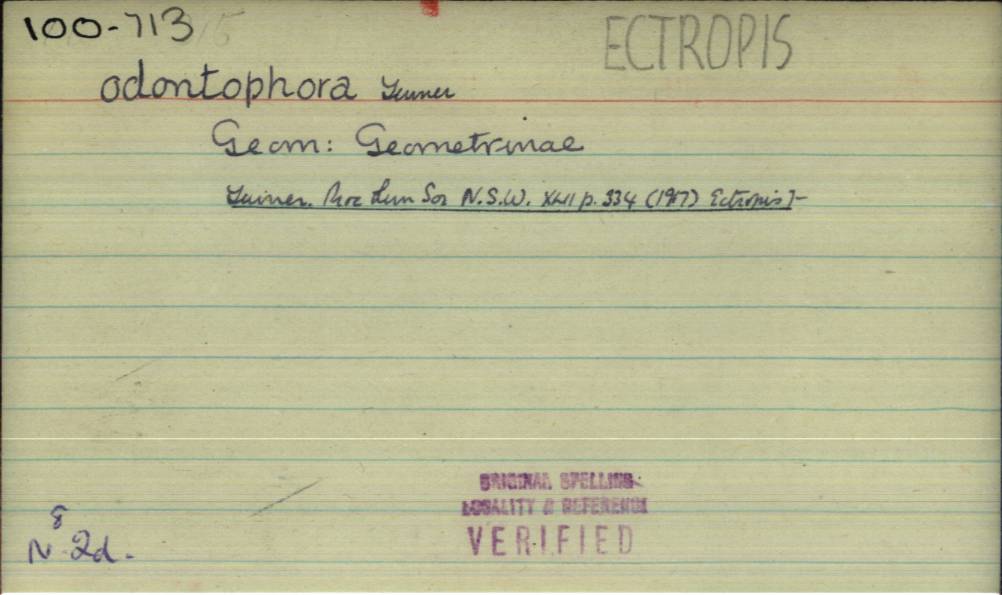 100-713
ECTROPIS
odontophora Turner
Geom: Geometrinae
Turner. Proc Linn Soc N.S.W. XLII p. 334 (1917) Ectropis]-
ORIGINAL SPELLING
LOCALITY & REFERENCE
VERIFIED
8
N. 2d.